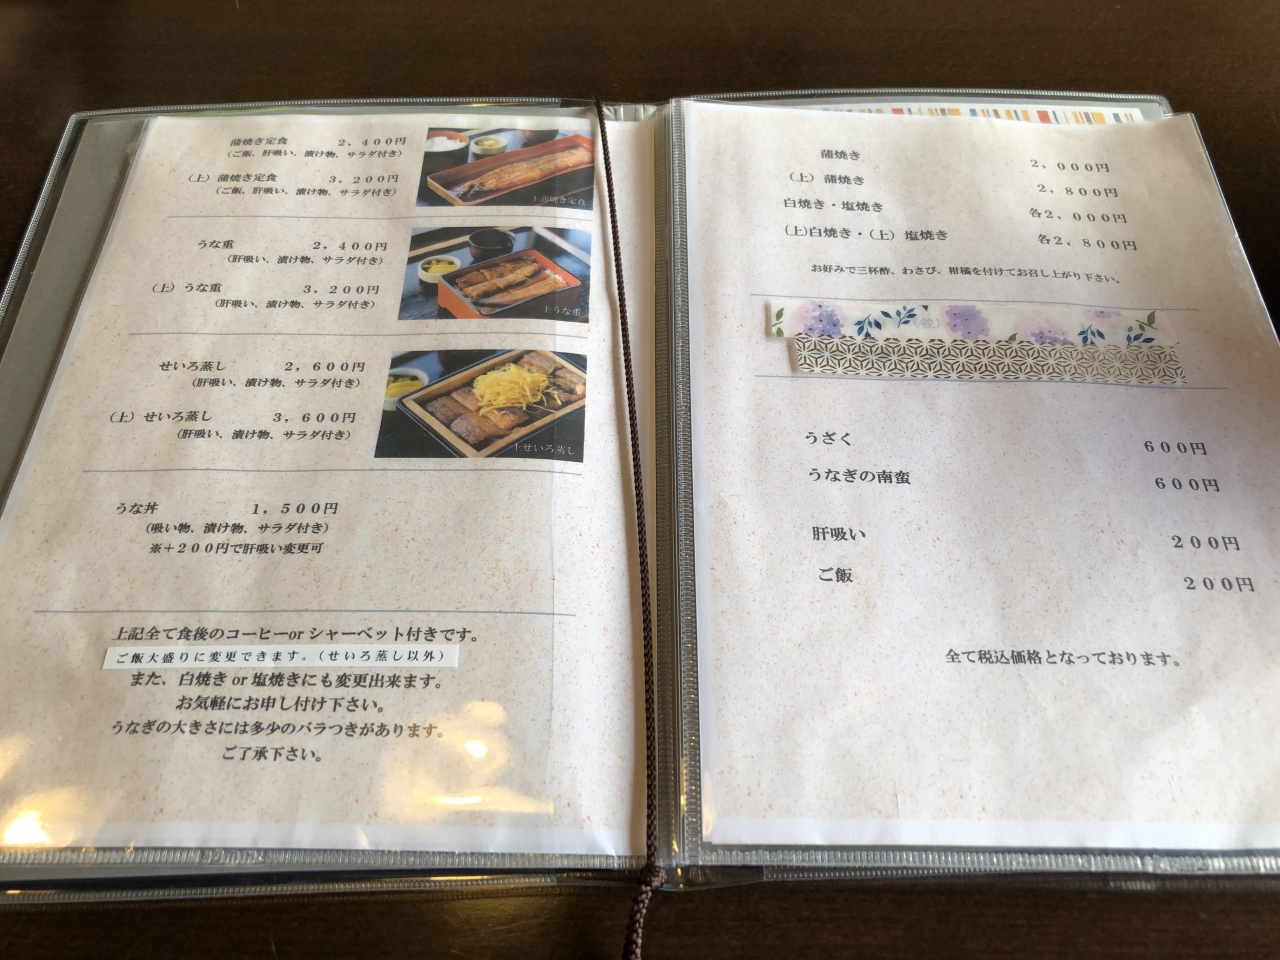 蒲焼き定食 2,400円
(ご飯、肝吸い、漬け物、サラダ付き)
(上)蒲焼き定食 3,200円
(ご飯、肝吸い、漬け物、サラダ付き)
上蒲焼き定食
うな重 2,400円
(肝吸い、漬け物、サラダ付き)
(上)うな重 3,200円
(肝吸い、漬け物、サラダ付き)
上うな重
せいろ蒸し 2,600円
(肝吸い、漬け物、サラダ付き)
(上)せいろ蒸し 3,600円
(肝吸い、漬け物、サラダ付き)
上せいろ蒸し
うな丼 1,500円
(吸い物、漬け物、サラダ付き)
※+200円で肝吸い変更可
上記全て食後のコーヒーor シャーベット付きです。
ご飯大盛りに変更できます。(せいろ蒸し以外)
また、白焼き or 塩焼きにも変更出来ます。
お気軽にお申し付け下さい。
うなぎの大きさには多少のバラつきがあります。
ご了承下さい。
蒲焼き 2,000円
(上)蒲焼き 2,800円
白焼き・塩焼き 各2,000円
(上)白焼き・(上)塩焼き 各2,800円
お好みで三杯酢、わさび、柑橘を付けてお召し上がり下さい。
うざく 600円
うなぎの南蛮 600円
肝吸い 200円
ご飯 200円
全て税込価格となっております。